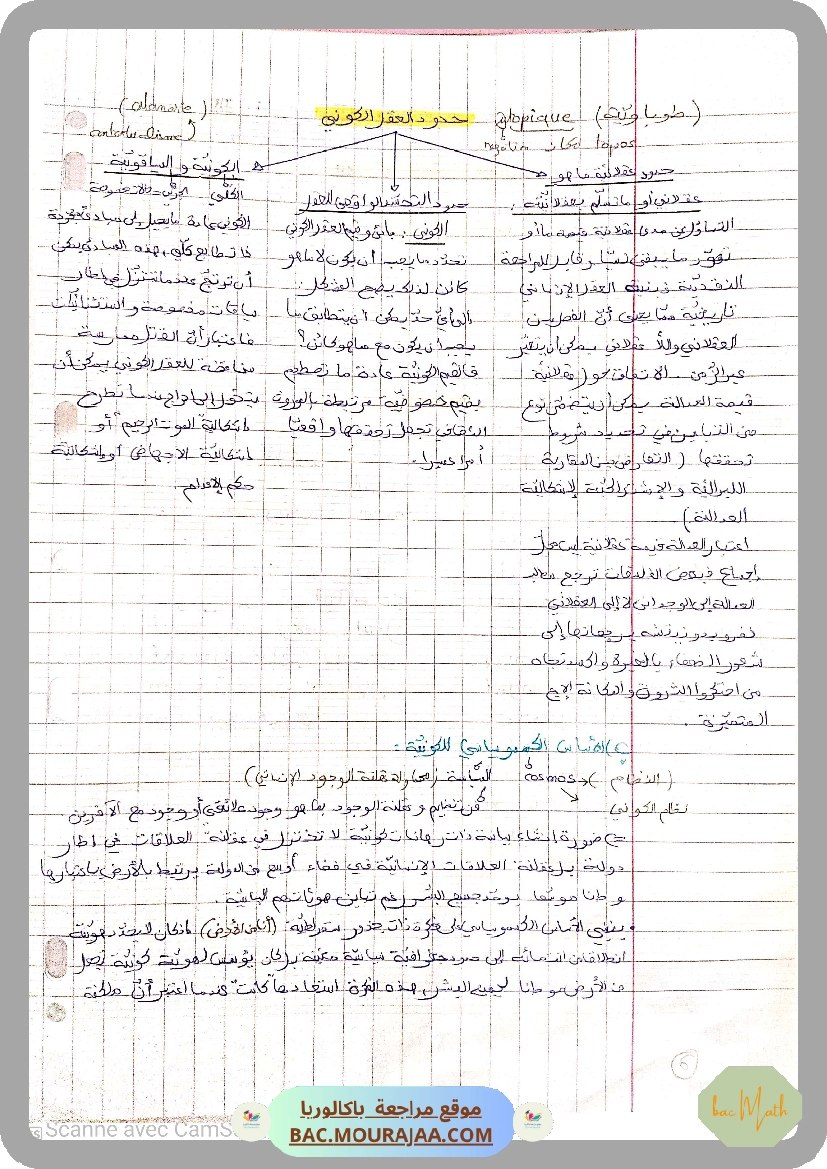 حدود العقل الكوني
(طوباويّة) utopique
topos مكان négation
حدود عقلانية ما هو
عقلاني أو ما نسلّم بعقلانيّته:
التساؤل عن مدى عقلانية قيمة ما أو
تصوّر ما يبقى نسبيا وقابل للمراجعة
النقديّة فبنية العقل الإنساني
تاريخيّة ممّا يعني أنّ الفصل بين
العقلاني واللاّعقلاني يمكن أن يتغيّر
عبر الزّمن. الاتفاق حول عقلانية
قيمة العدالة يمكن أن يتضمّن نوع
من التباين في تحديد شروط
تحققها (التعارض بين المقاربة
الليبراليّة والإشتراكيّة لإشكاليّة
العدالة)
اعتبار العدالة قيمة عقلانيّة ليس محلّ
إجماع فبعض الفلسفات ترجع مطلب
العدالة إلى الوجداني لا إلى العقلاني
ففرويد ونيتشه يرجعانها إلى
شعور الضعفاء بالغيرة والحسد تجاه
من احتكروا الثروة والمكانة الإج
المتميّزة.
حدود التجسّد الواقعي للعقل
الكوني: بأيّ وضع العقل الكوني
تحدّد ما يجب أن يكون لا ما هو
كائن لذلك يصبح المشكل:
إلى أيّ حدّ يمكن أن يتطابق ما
يجب أن يكون مع ما هو كائن؟
فالقيم الكونيّة عادة ما تصطدم
بقيم خصوصيّة مرتبطة بالموروث
الثقافي تجعل تحققها واقعيّا
أمرا عسيرا.
الكونيّة والسياقويّة
الكوني عادة ما يحيل إلى مبادئ مجرّدة
ذات طابع كلّي، هذه المبادئ يمكن
أن تربك عندما تتنزّل في إطار
سياقات مخصوصة والاستثنائيّات
فاعتبار أنّ القتل ممارسة
مناقضة للعقل الكوني يمكن أن
يتحوّل إلى إحراج عندما نطرح
إشكاليّة الموت الرحيم أو
إشكاليّة الإجهاض أو إشكاليّة
حكم الإعدام
الأساس الكسموسياسي للكونيّة:
(النظام) cosmos السّياسة (محاولة عقلنة الوجود الإنساني)
نظام الكوني
فنّ تنظيم وعقلنة الوجود بما هو وجود علائقي أو وجود مع الآخرين
ضرورة إنشاء سياسة ذات رهانات كونيّة لا تختزل في عقلنة العلاقات في إطار
دولة بل عقلنة العلاقات الإنسانيّة في فضاء أوسع من الدولة يرتبط بالأرض باعتبارها
وطنا يوحّد جميع البشر رغم تباين هويّاتهم السياسيّة.
ينبني الأساس الكسموسياسي على فكرة ذات جذور سقراطيّة: (أنا من الأرض) فكان لا يحدّد هويّته
انطلاقا من انتمائه إلى حدود جغرافيّة سياسيّة معيّنة بل كان يؤسس لهويّة كونيّة تجعل
من الأرض موطنا لجميع البشر، هذه الفكرة استعادها كانت عندما اعتبر أنّ ملكيّة
6
bac Math
موقع مراجعة باكالوريا
BAC.MOURAJAA.COM
Scanné avec CamS